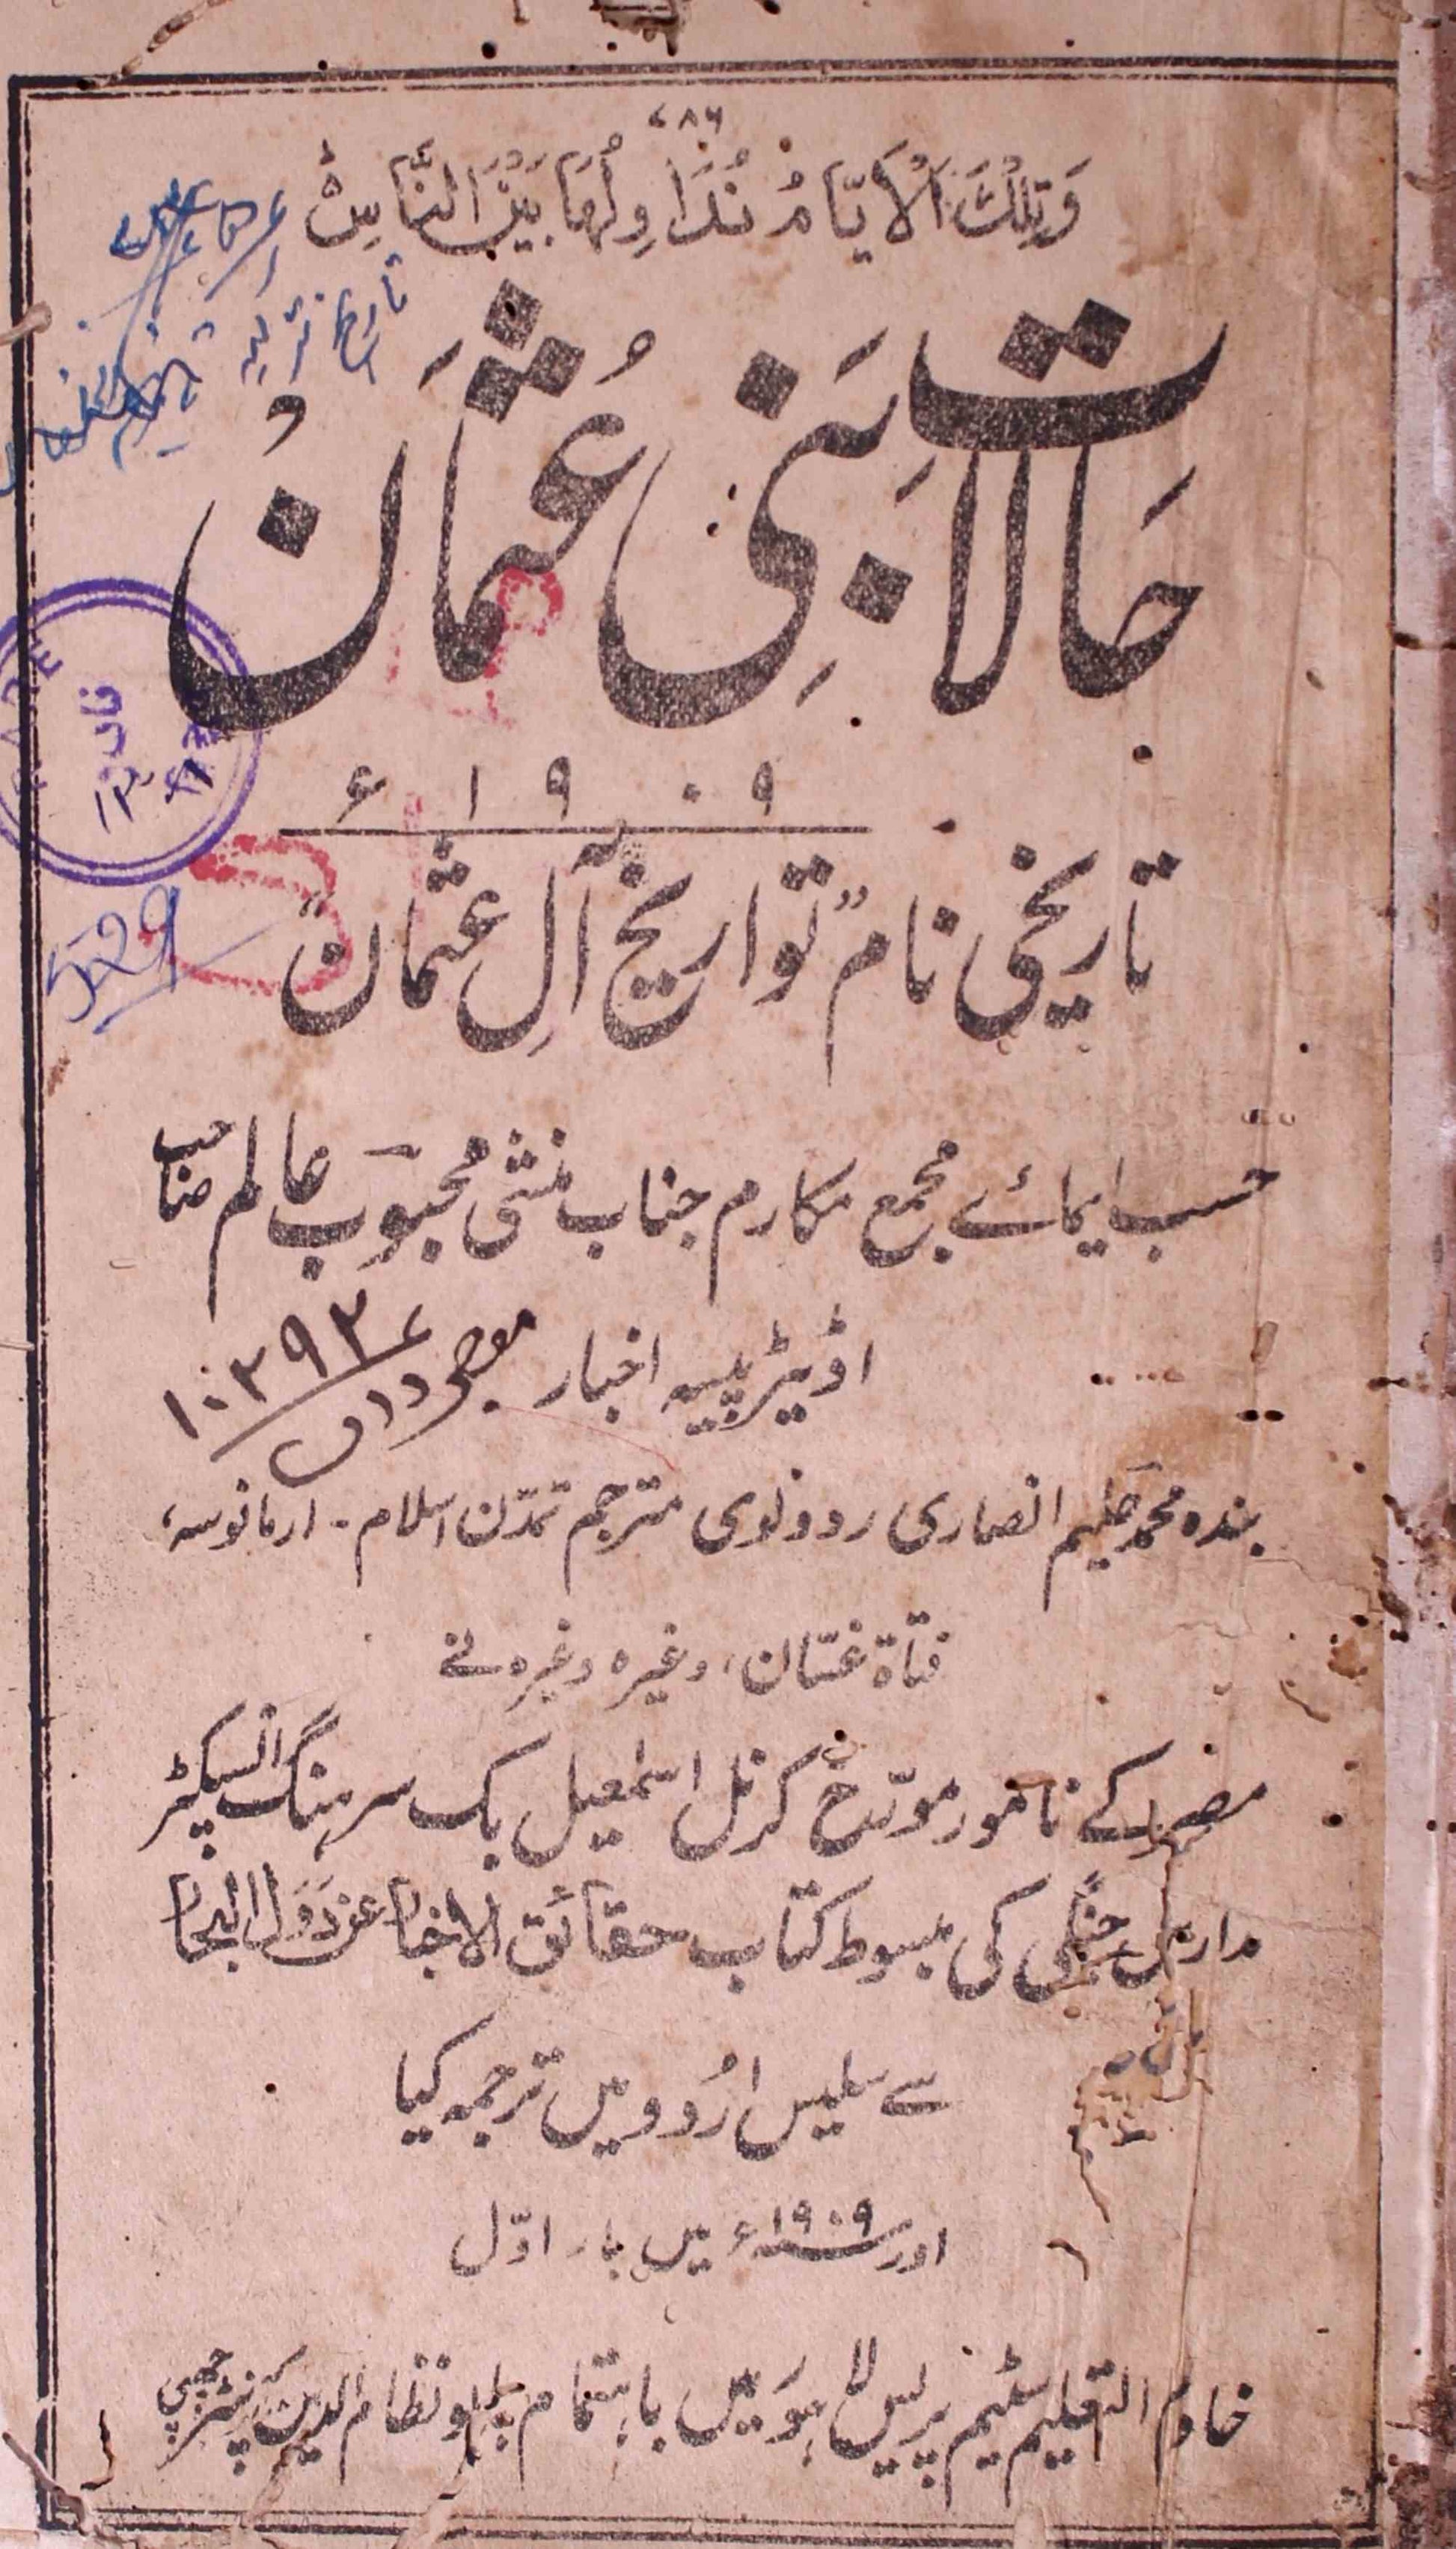 ۷۸۶
وَتِلْكَ الْاَیَّامُ نُدَاوِلُهَا بَیْنَ النَّاسِ ط
حَالات بَنِی عُثْمَانُ
۱۹۰۹ء
تاریخی نام "تواریخ آلِ عثمان"
حسب ایمائے مجمع مکارم جناب منشی محبوب عالم صاحب
اڈیٹر پیسہ اخبار
۱۰۳۹۲
529
بندہ محمد حلیم انصاری ردولوی مترجم تمدّن اسلام - ارمانوسہ،
فتاة غسّان، وغیرہ وغیرہ نے
مصر کے نامور مورّخ کرنل اسمٰعیل بک سرہنگ انسپکٹر
مدارس جنگی کی مبسوط کتاب حقائق الاخبار عن دول البحار
سے سلیس اُردو میں ترجمہ کیا
اور ۱۹۰۹ء میں بار اوّل
خادم التعلیم سٹیم پریس لاہور میں باہتمام بابو نظام الدین پرنٹر چھپی